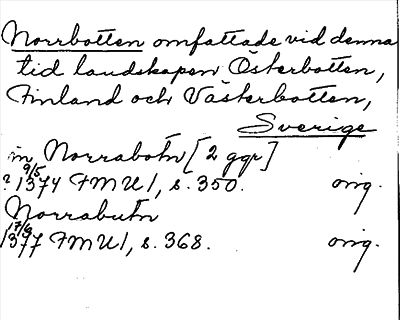 Norrbotten omfattade vid denna
tid landskapen Österbotten,
Finland och Västerbotten,
Sverige
in Norrabotn [2 ggr]
9/5 1374 FMU I, s. 350. orig.
Norrabutn
1377 FMU I, s. 368. orig.